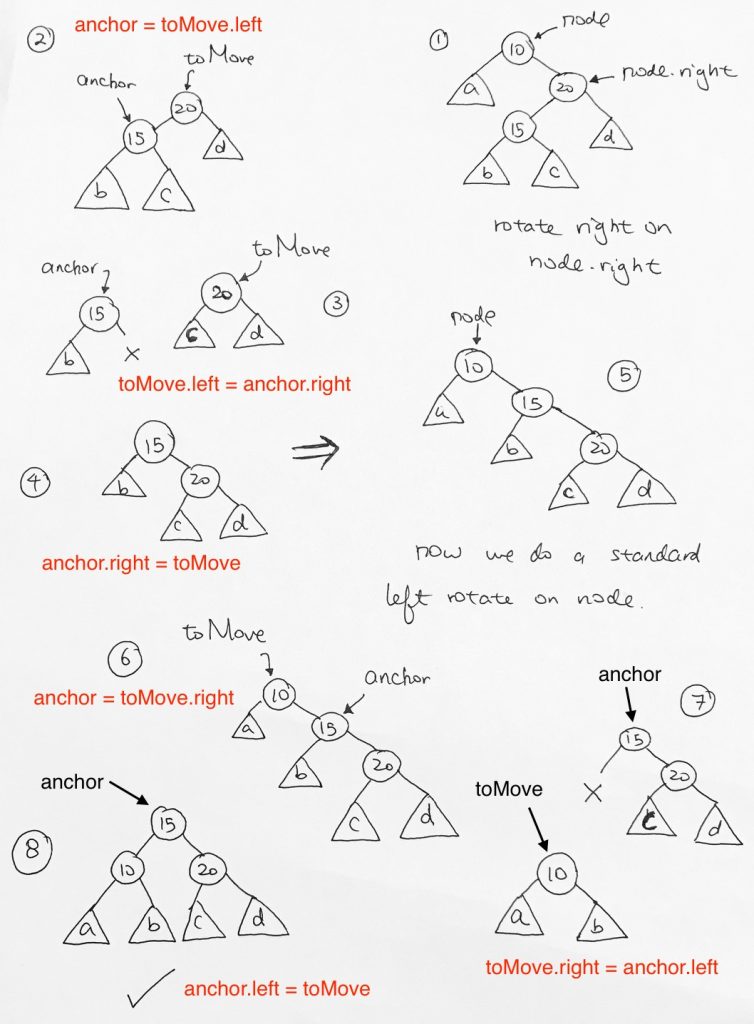 ①
node
10
node.right
a
20
15
d
b
c
rotate right on
node.right
②
anchor = toMove.left
toMove
anchor
20
15
d
b
c
③
anchor
toMove
15
20
b
X
c
d
toMove.left = anchor.right
④
15
b
20
c
d
anchor.right = toMove
⑤
node
10
a
15
b
20
c
d
now we do a standard
left rotate on node.
⑥
toMove
anchor = toMove.right
10
anchor
a
15
b
20
c
d
⑦
anchor
15
X
20
c
d
toMove
10
a
b
toMove.right = anchor.left
⑧
anchor
15
10
20
a
b
c
d
anchor.left = toMove